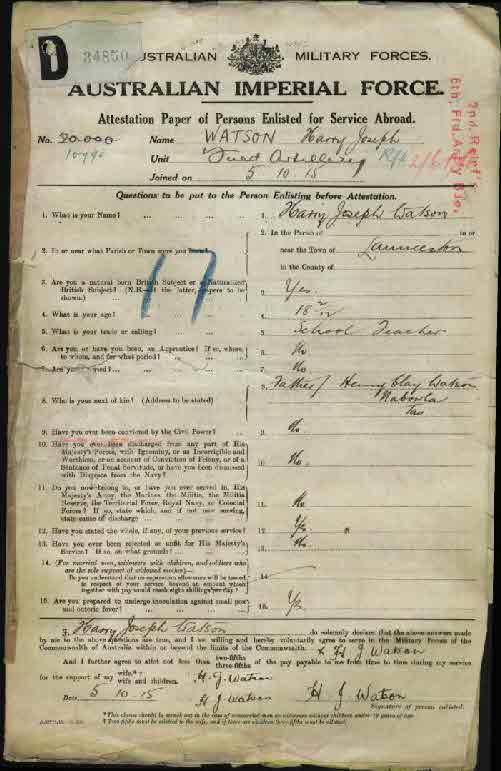 D
34850
AUSTRALIAN MILITARY FORCES.
AUSTRALIAN IMPERIAL FORCE.
Attestation Paper of Persons Enlisted for Service Abroad.
No. 20.000 Name WATSON Harry Joseph
10790 Unit Field Artillery
Joined on 5 10 15
2nd. Reinfts
6th. Fld. Arty Bde.
Questions to be put to the Person Enlisting before Attestation.
1. What is your Name? ... 1. Harry Joseph Watson
2. In or near what Parish or Town were you born? 2. In the Parish of in or
near the Town of Launceston
in the County of
17
3. Are you a natural born British Subject or a Naturalized
British Subject? (N.B.—If the latter, papers to be
shown.) 3. Yes.
4. What is your age? 4. 18 2/12
5. What is your trade or calling? 5. School Teacher
6. Are you, or have you been, an Apprentice? If so, where,
to whom, and for what period? 6. No
7. Are you married? 7. No
8. Who is your next of kin? (Address to be stated) 8. Father Henry Clay Watson
Nabowla
Tas
9. Have you ever been convicted by the Civil Power? 9. No.
10. Have you ever been discharged from any part of His
Majesty's Forces, with Ignominy, or as Incorrigible and
Worthless, or on account of Conviction of Felony, or of a
Sentence of Penal Servitude, or have you been dismissed
with Disgrace from the Navy? 10. No.
11. Do you now belong to, or have you ever served in, His
Majesty's Army, the Marines, the Militia, the Militia
Reserve, the Territorial Force, Royal Navy, or Colonial
Forces? If so, state which, and if not now serving,
state cause of discharge 11. No
12. Have you stated the whole, if any, of your previous service? 12. Yes
13. Have you ever been rejected as unfit for His Majesty's
Service? If so, on what grounds? 13. No
14. (For married men, widowers with children, and soldiers who
are the sole support of widowed mother)—
Do you understand that no separation allowance will be issued
in respect of your service beyond an amount which
together with pay would reach eight shillings per day? 14.
15. Are you prepared to undergo inoculation against small pox
and enteric fever? 15. Yes.
I, Harry Joseph Watson do solemnly declare that the above answers made
by me to the above questions are true, and I am willing and hereby voluntarily agree to serve in the Military Forces of the
Commonwealth of Australia within or beyond the limits of the Commonwealth. x H J Watson
And I further agree to allot not less than two-fifths three-fifths of the pay payable to me from time to time during my service
for the support of my wife. wife and children. H. J. Watson
Date 5 10 15 H J Watson H J Watson
Signature of person enlisted.
* This clause should be struck out in the case of unmarried men or widowers without children under 18 years of age.
† Two-fifths must be allotted to the wife, and if there are children three-fifths must be allotted.